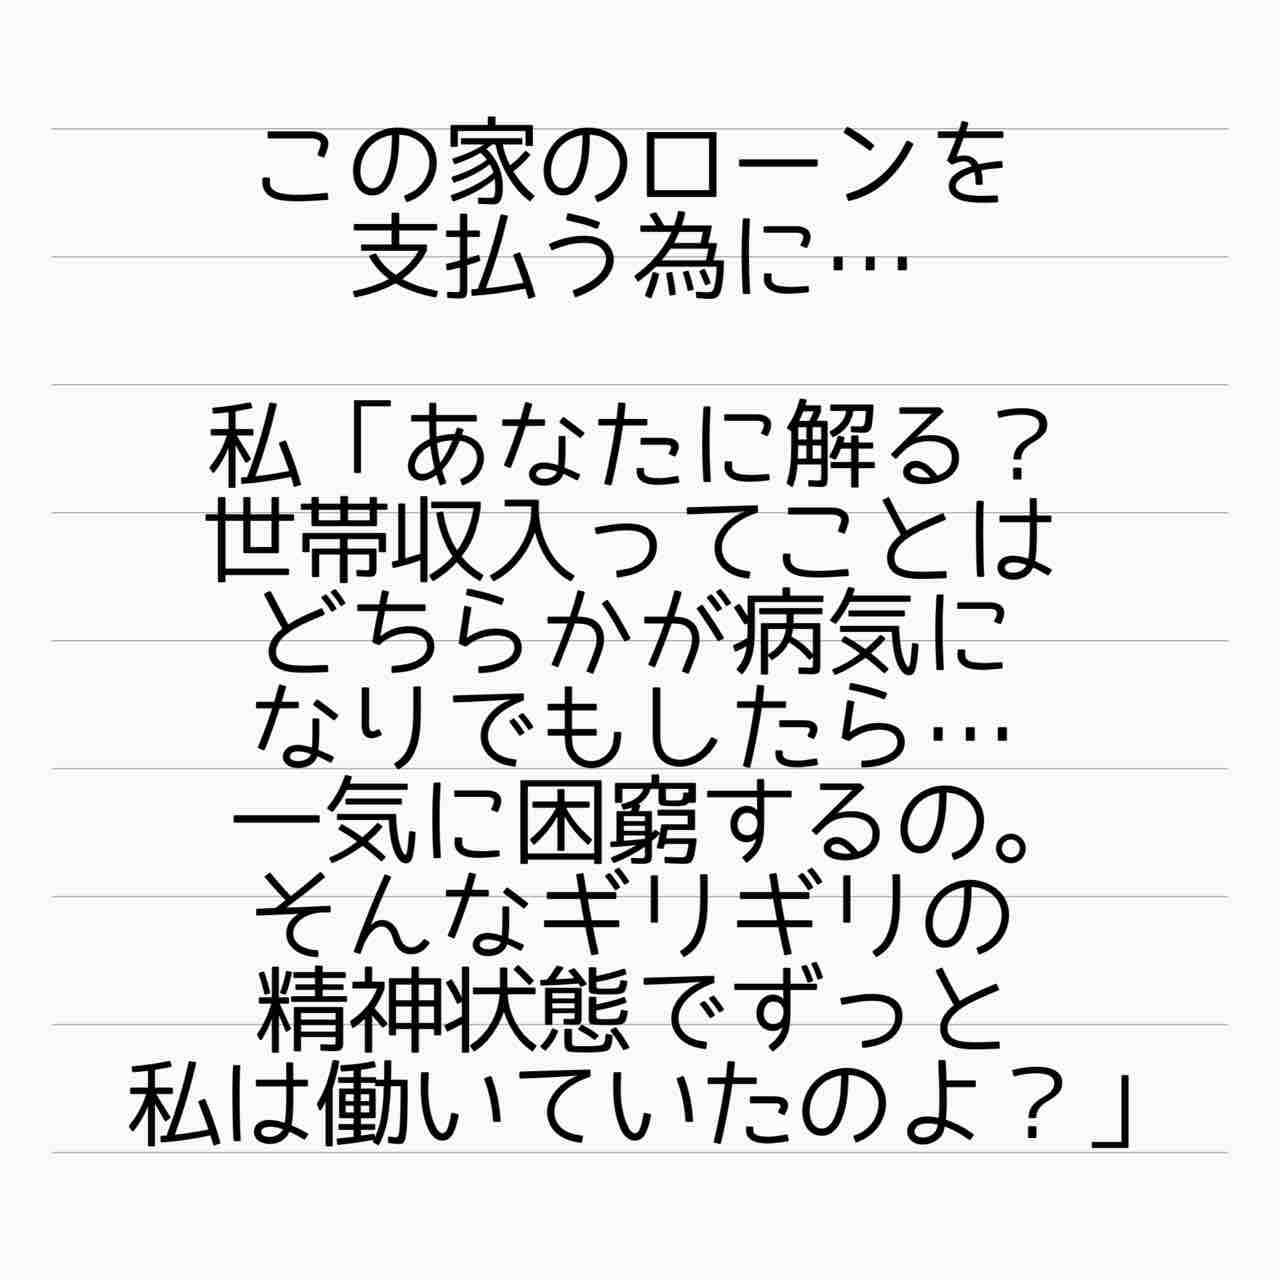 この家のローンを
支払う為に…
私「あなたに解る？
世帯収入ってことは
どちらかが病気に
なりでもしたら…
一気に困窮するの。
そんなギリギリの
精神状態でずっと
私は働いていたのよ？」